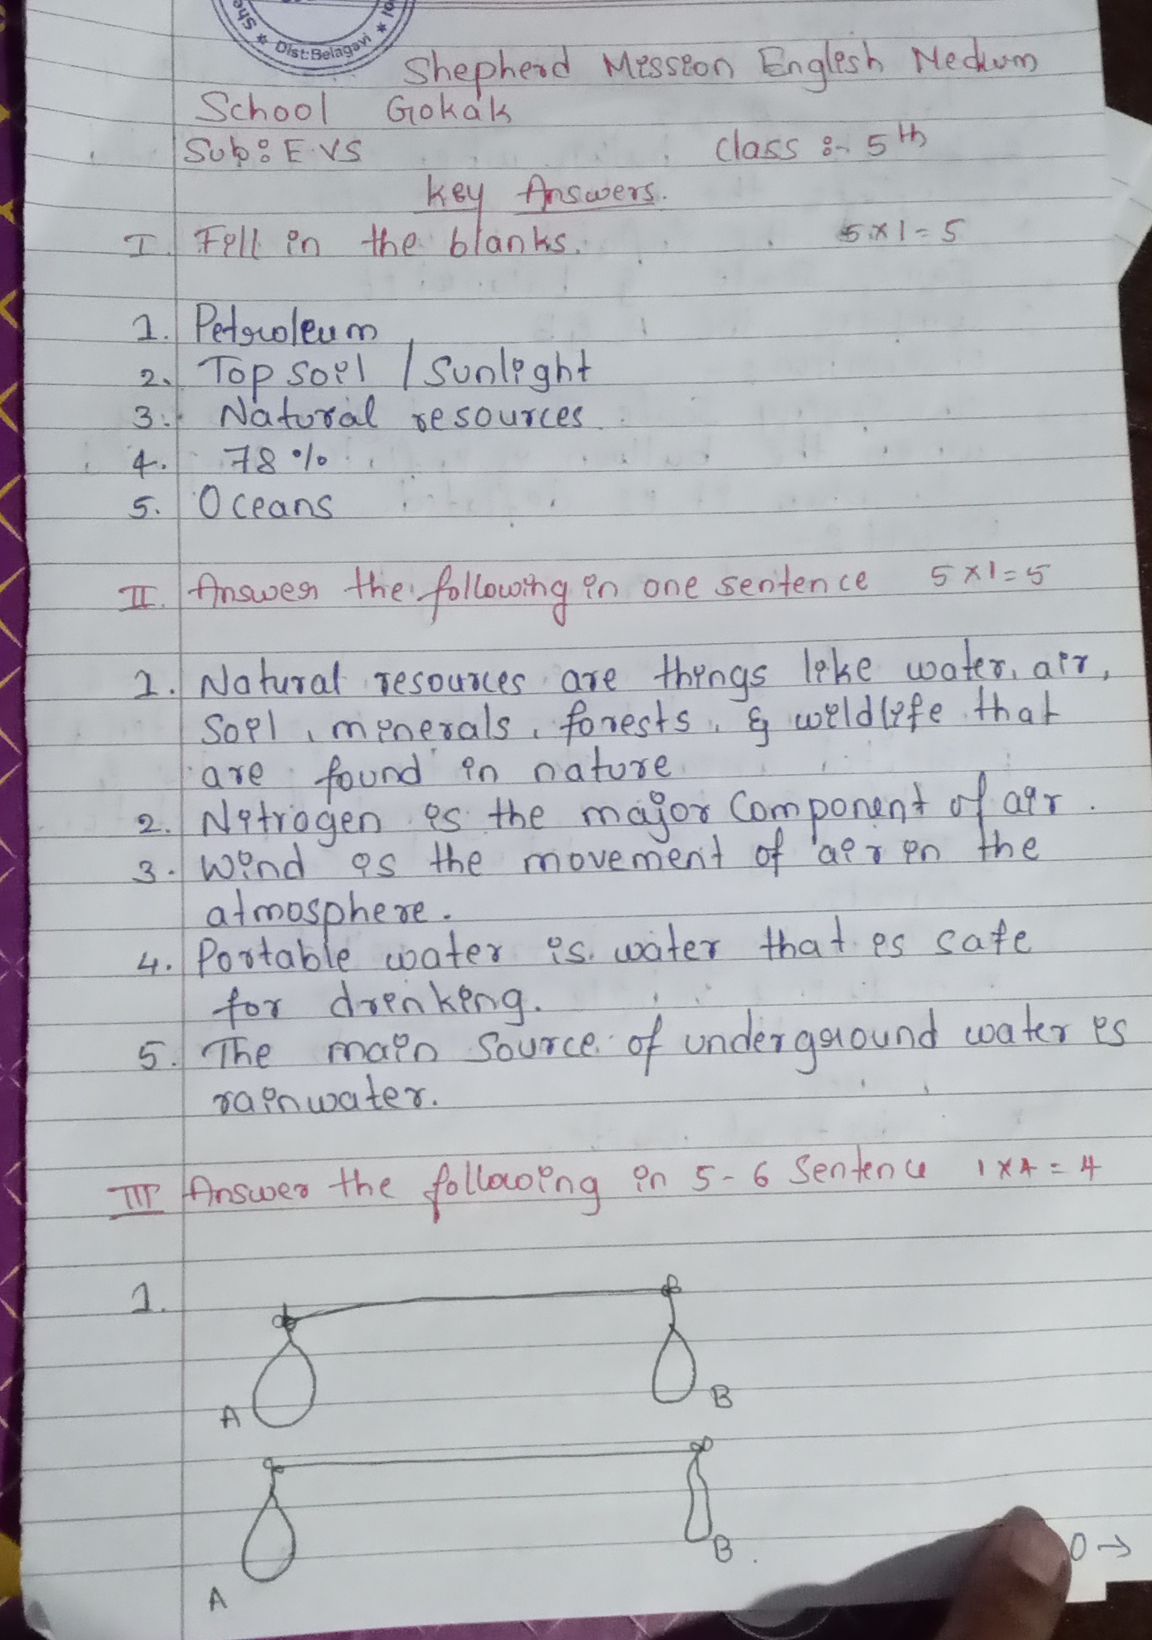 Dist:Belagavi
Shepherd Mission English Medium
School Gokak
Sub: E.VS Class :- 5th
Key Answers.
I. Fill in the blanks. 5x1=5
1. Petroleum
2. Top soil / Sunlight
3. Natural resources.
4. 78%
5. Oceans
II. Answer the following in one sentence 5x1=5
1. Natural resources are things like water, air,
soil, minerals, forests, & wildlife that
are found in nature
2. Nitrogen is the major component of air.
3. Wind is the movement of air in the
atmosphere.
4. Portable water is water that is safe
for drinking.
5. The main source of underground water is
rainwater.
III Answer the following in 5-6 Sentence 1x4=4
1.
A B
A B.